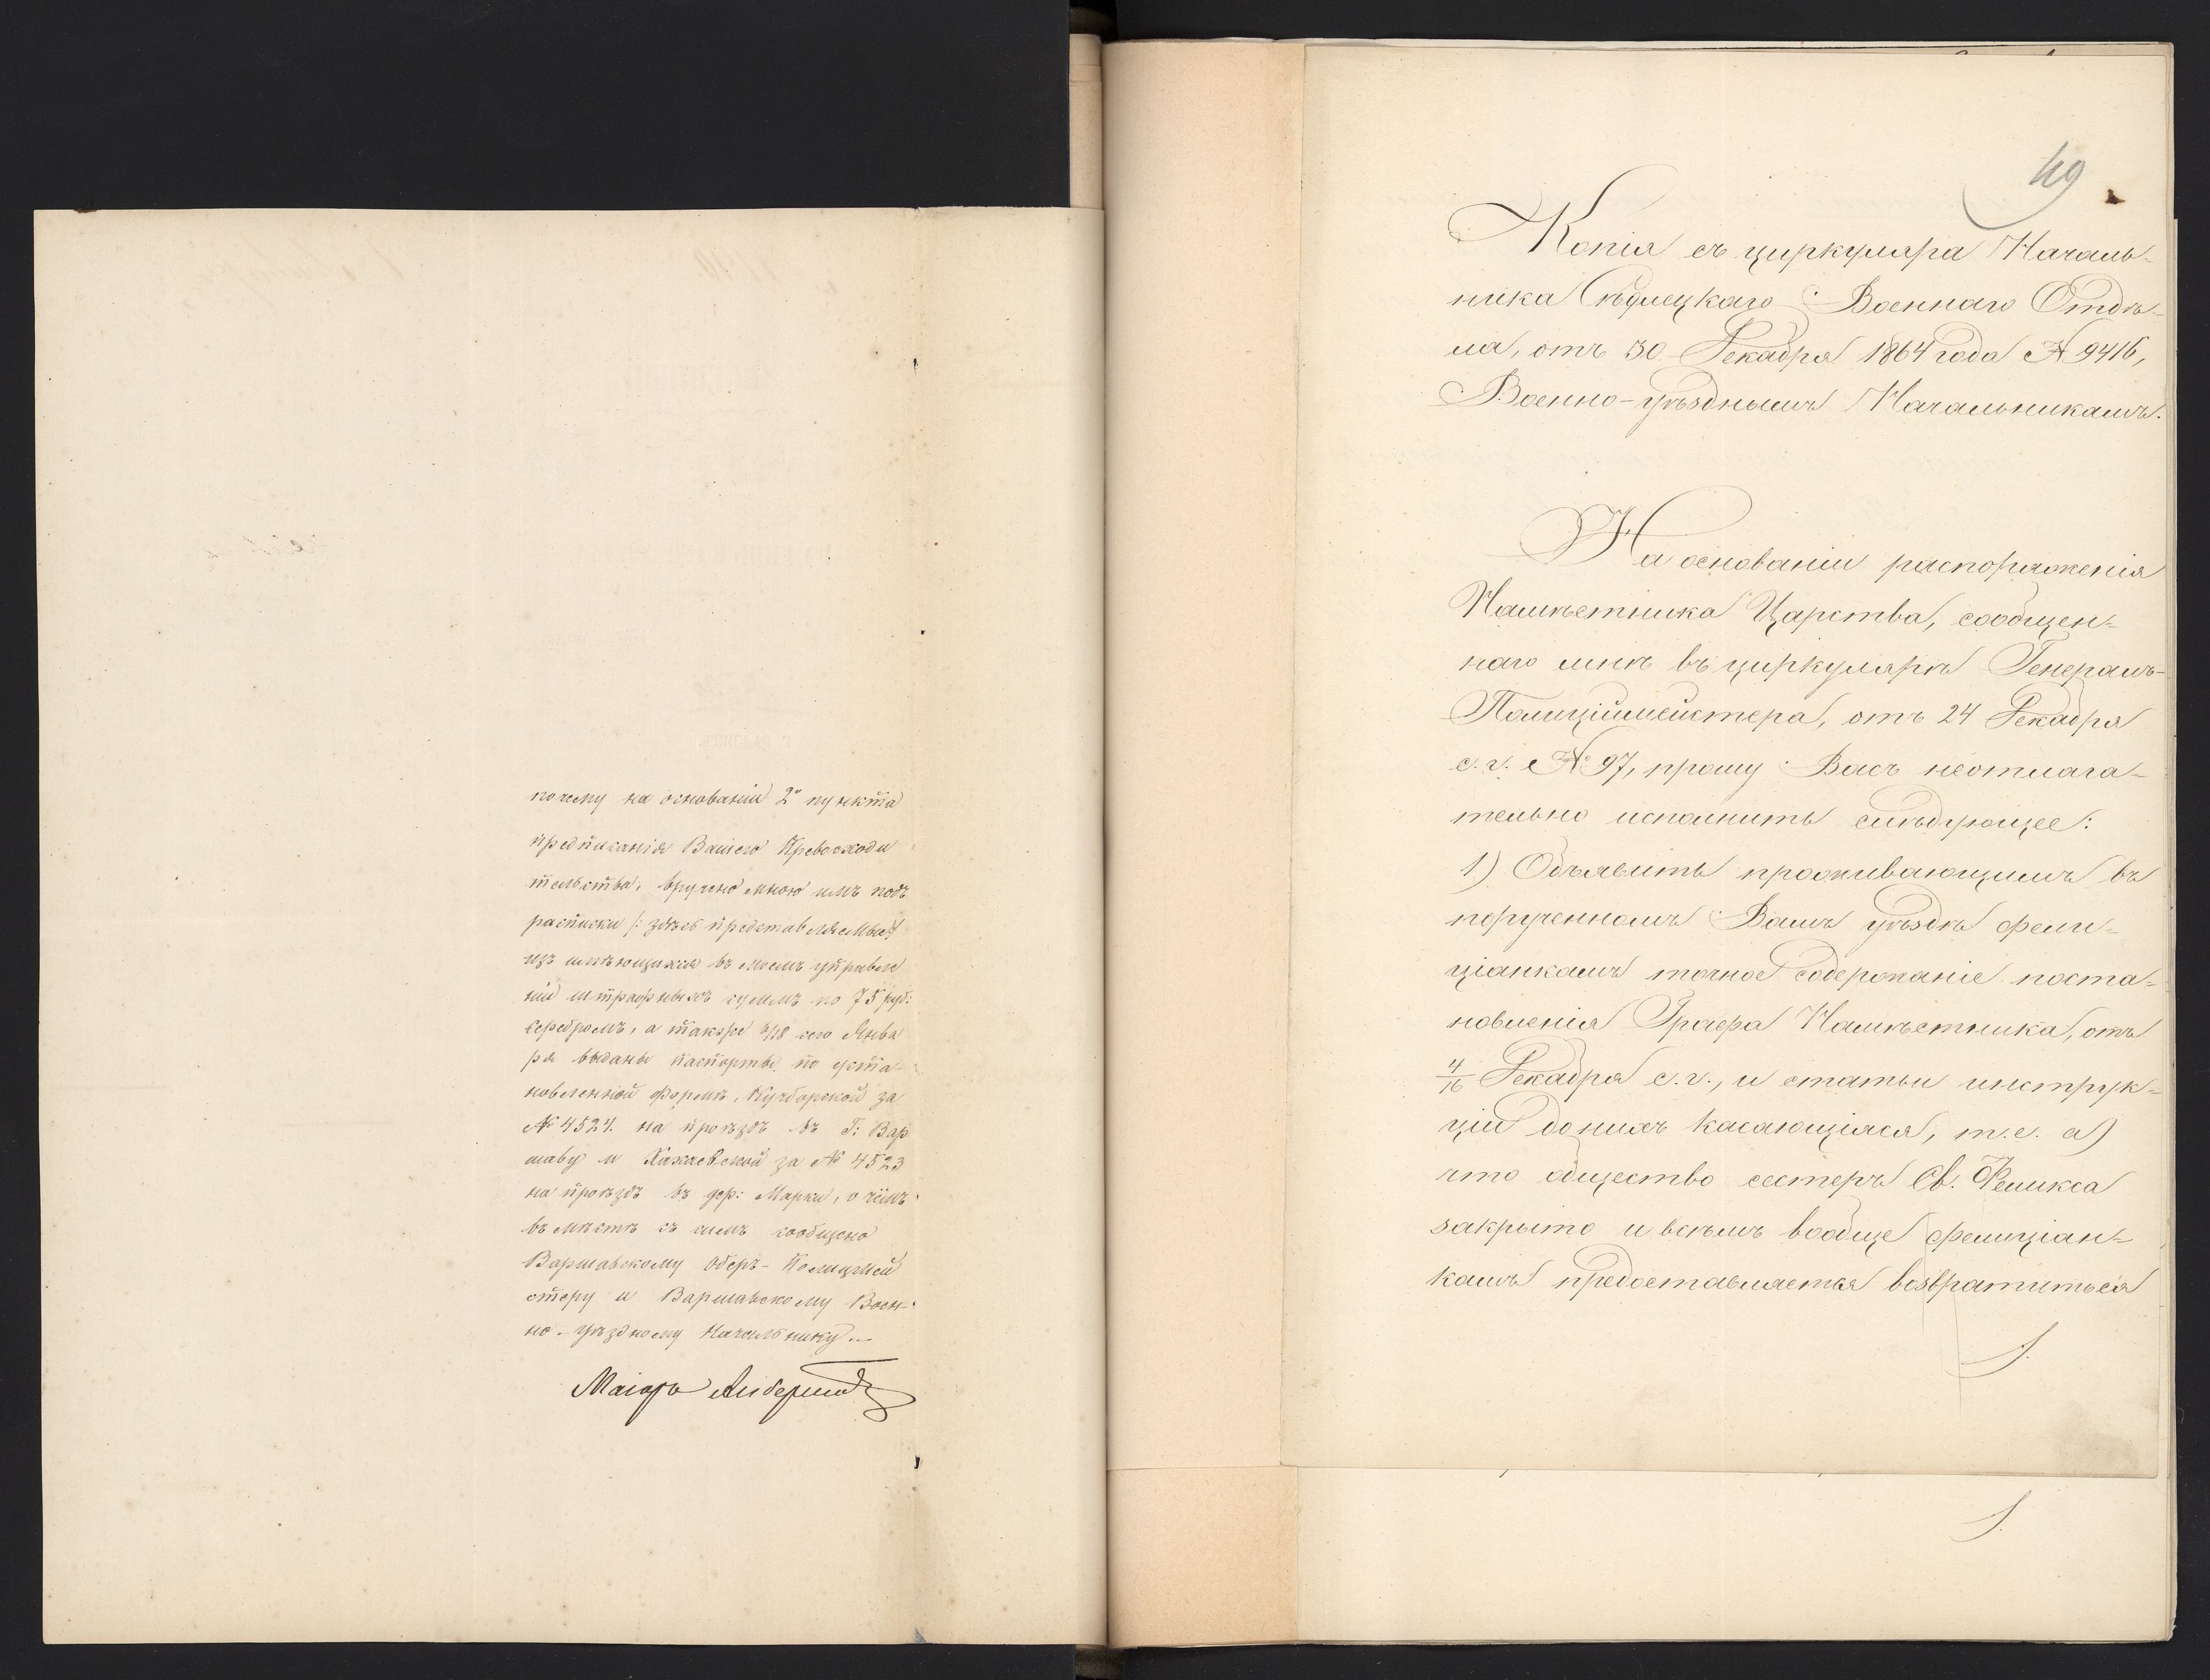 почему на основаніи 2го пункта
предписанія Вашего Превосходи
тельства, вручено мною имъ подъ
расписки /: здѣсь представляемыя :/
изъ имѣющихся въ моемъ управле
ніи штрафныхъ суммъ по 75 руб:
серебромъ, а также 6/18 сего Янва
ря выданы паспорты по уста-
новленной формѣ, Кучборской за
№ 4524 на проѣздъ въ Г: Вар
шаву и за № 4523
на проѣздъ въ дер: Марки, о чемъ
въ мѣстѣ съ симъ сообщено
Варшавскому Оберъ-Полицмей
стеру и Варшавскому Воен-
но-уѣздному Начальнику.
Маіоръ
49
Копія съ циркуляра Началь-
ника Сѣдлецкаго Военнаго Отдѣ-
ла, отъ 30 Декабря 1864 года № 9416,
Военно-уѣзднымъ Начальникамъ.
На основаніи распоряженія
Намѣстника Царства, сообщен-
наго мнѣ въ циркулярѣ Генералъ-
Полиціймейстера, отъ 24 Декабря
с.г. № 97, прошу Васъ неотлага-
тельно исполнить слѣдующее:
1) Объявить проживающимъ въ
порученномъ Вамъ уѣздѣ фели-
ціанкамъ точное содержаніе поста-
новленія Графа Намѣстника, отъ
4/16 Декабря с.г., и статьи инструк-
ціи до нихъ касающіяся, т.е. а)
что общество сестеръ Св. Феликса
закрыто и всѣмъ вообще фелиціан-
камъ предоставляется возвратиться